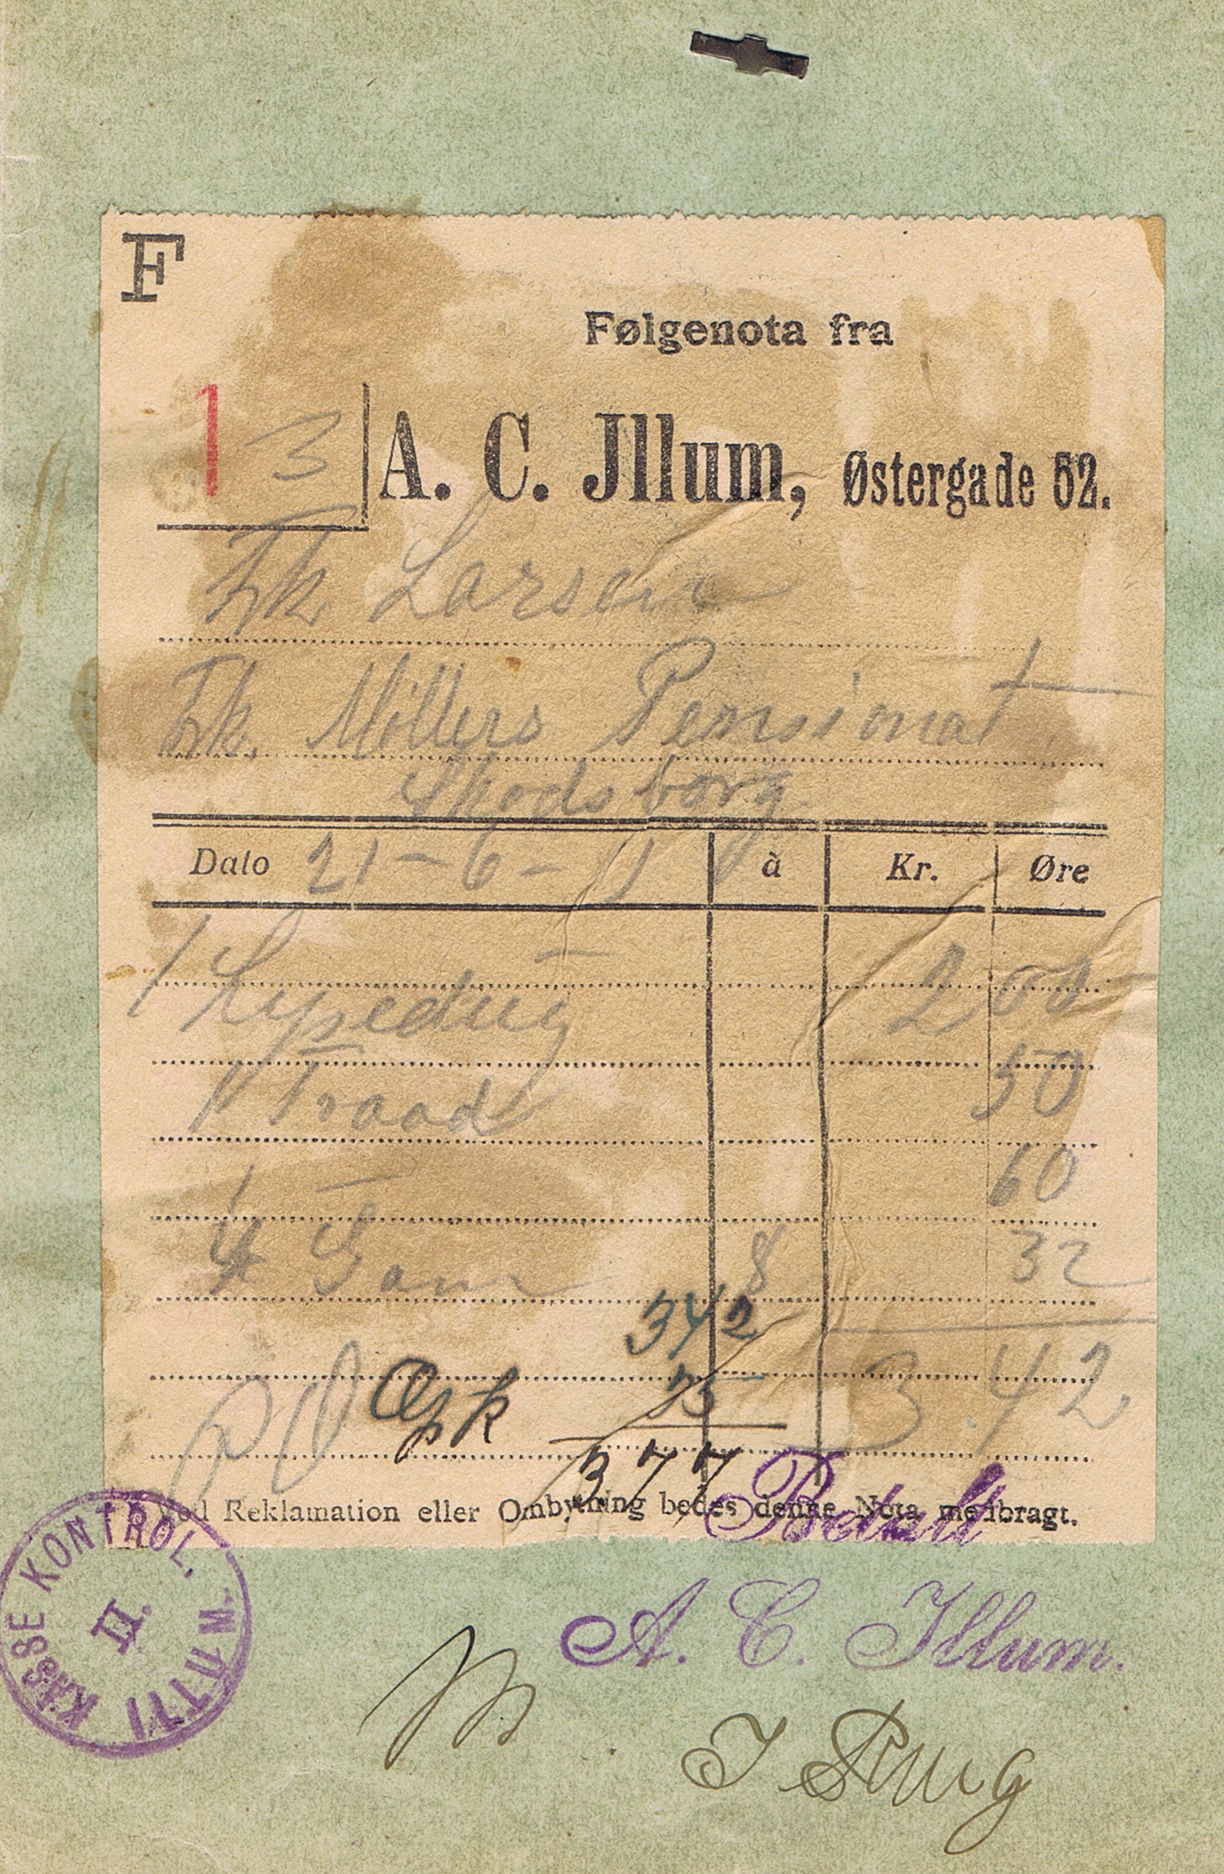 F
Følgenota fra
1 3
A. C. Jllum, Østergade 52.
Frk Larsen
Frk. Möllers Pensionat
Skodsborg
Dato 21-6-11 à Kr. Øre
1 2 00
1 Traad 50
60
4 8 32
342
3.42
25
377
Ved Reklamation eller Ombytning bedes denne Nota medbragt.
Betalt
A. C. Illum.
KASSE KONTROL.
II.